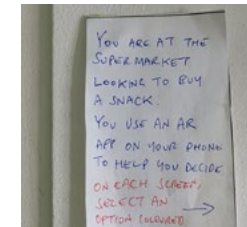 YOU ARE AT THE
SUPERMARKET
LOOKING TO BUY
A SNACK.
YOU USE AN AR
APP ON YOUR PHONE
TO HELP YOU DECIDE
ON EACH SCREEN,
SELECT AN
OPTION COLOURED